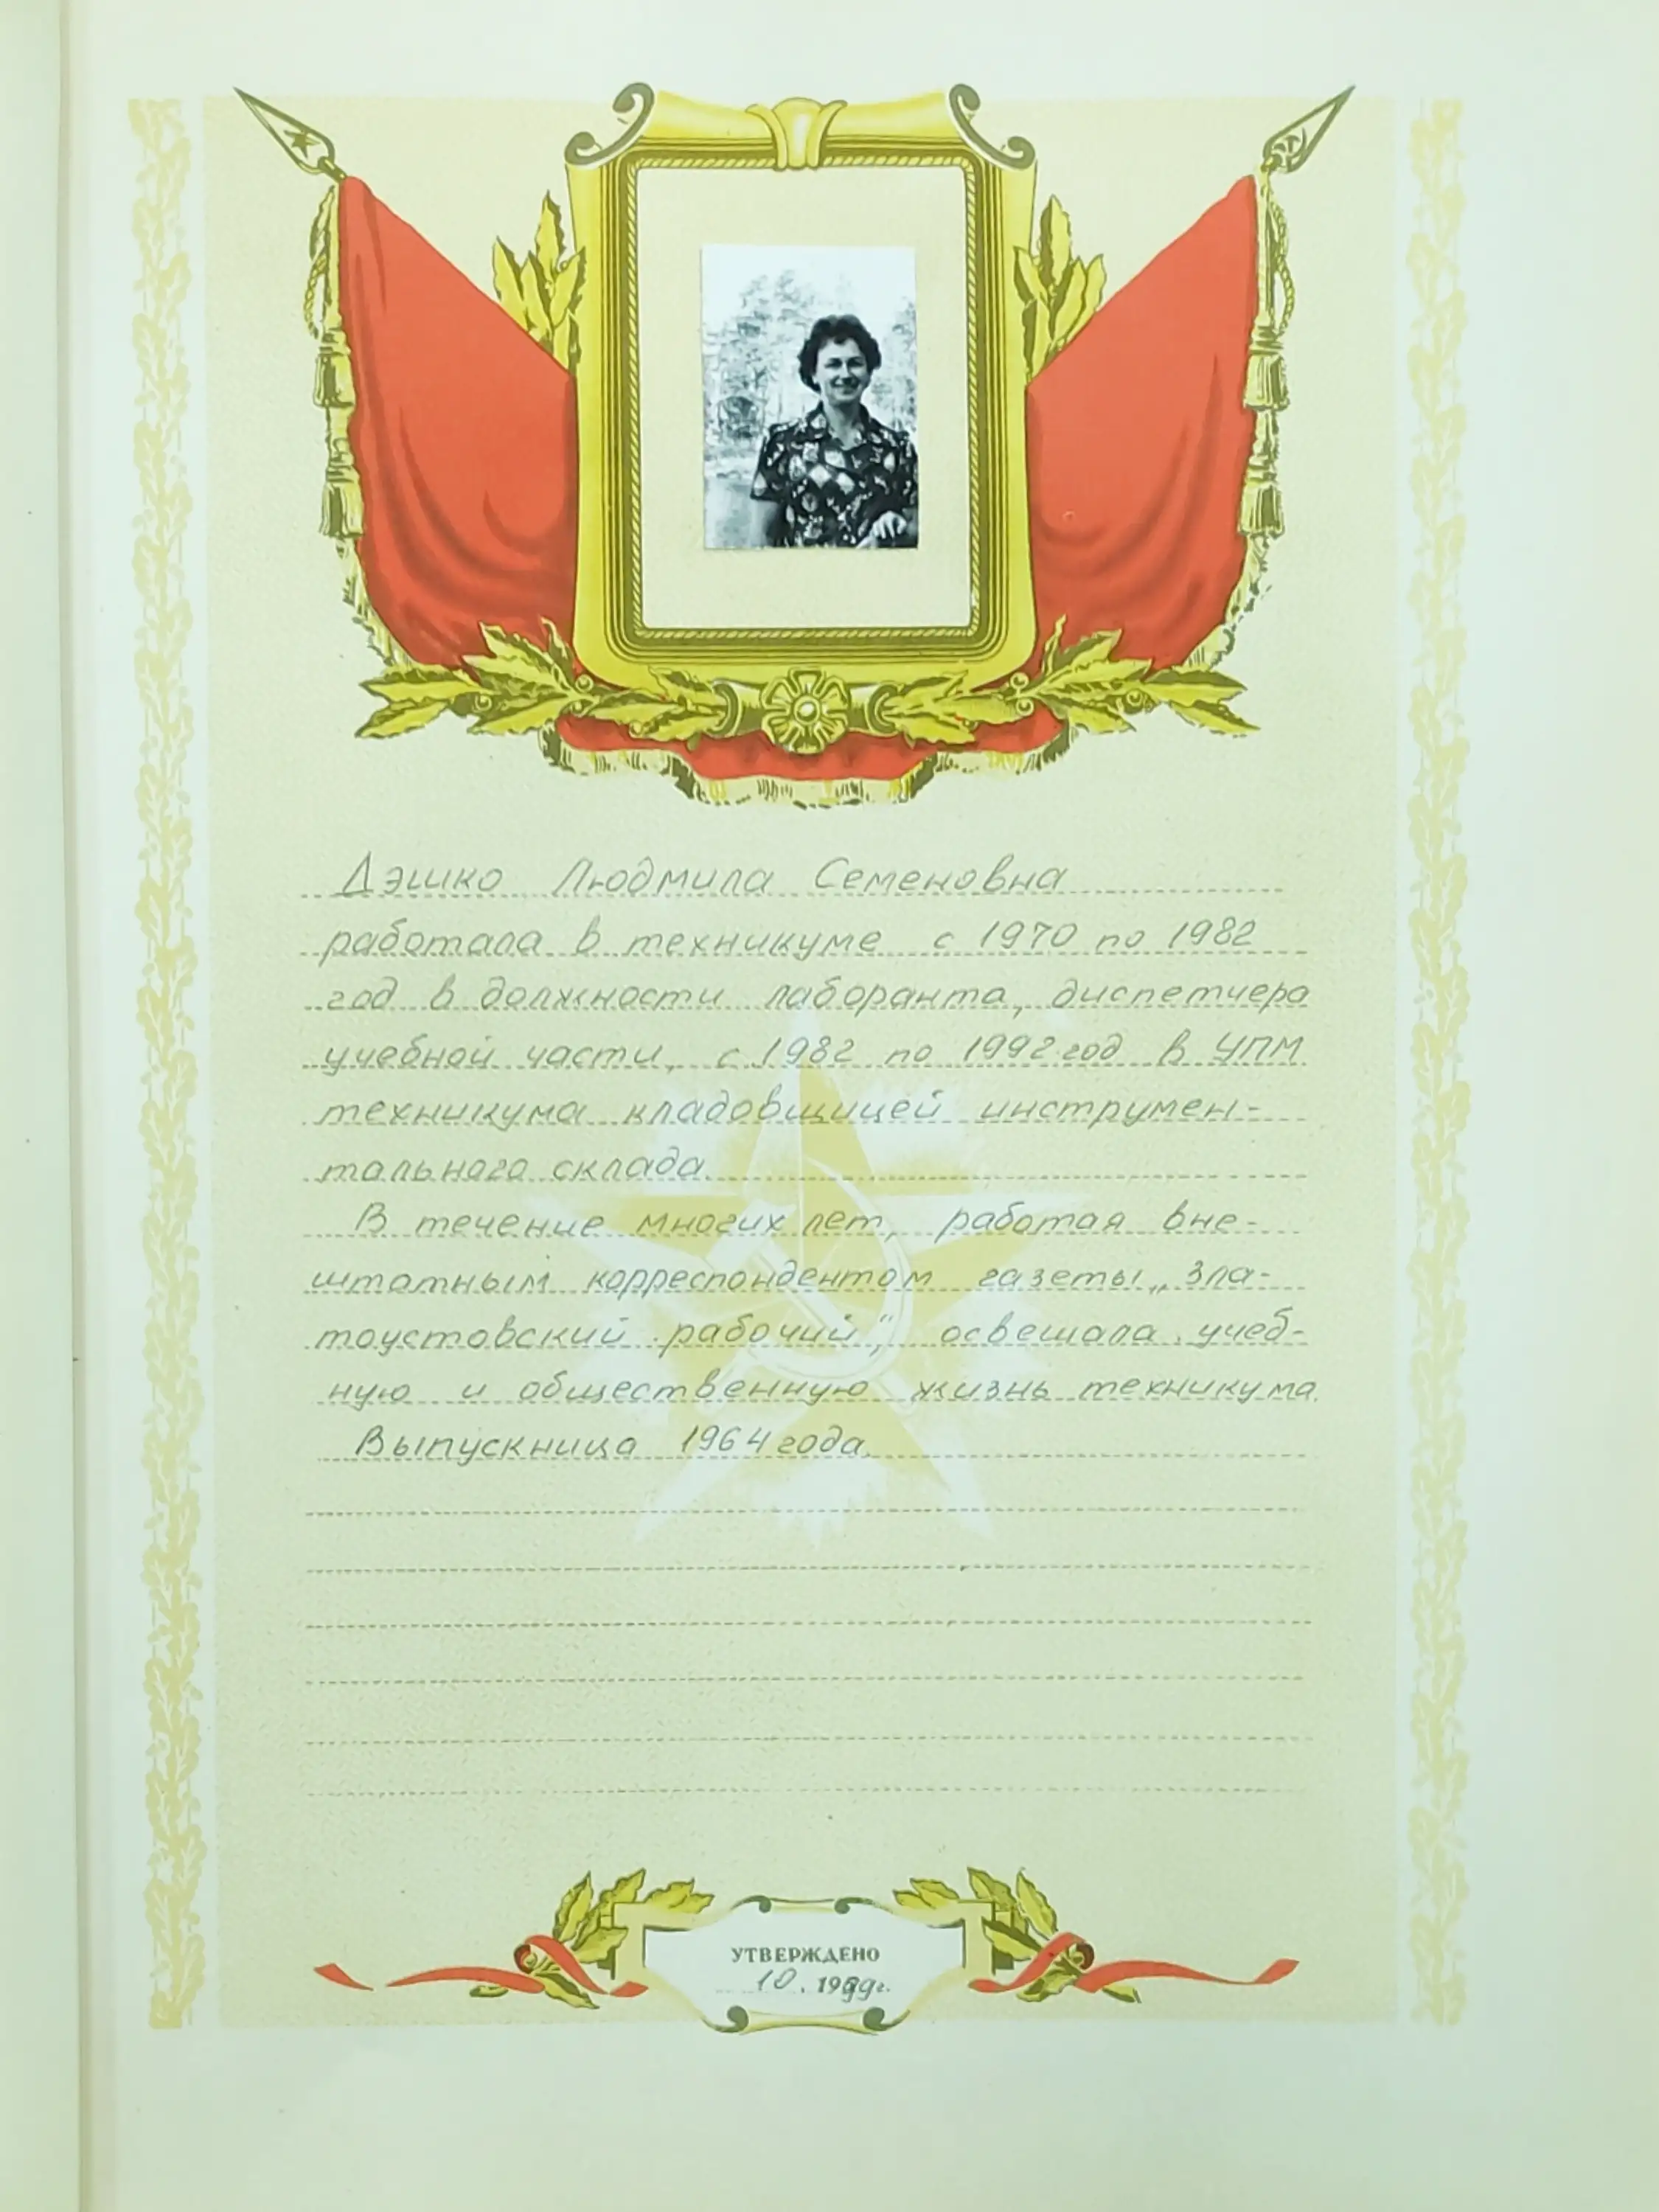 Дэшко Людмила Семеновна
работала в техникуме с 1970 по 1982
год в должности лаборанта, диспетчера
учебной части, с 1982 по 1992 год в УПМ
техникума кладовщицей инструмен-
тального склада.
В течение многих лет, работая вне-
штатным корреспондентом газеты „Зла-
тоустовский рабочий“, освещала учеб-
ную и общественную жизнь техникума.
Выпускница 1964 года.
УТВЕРЖДЕНО
10. 1999г.